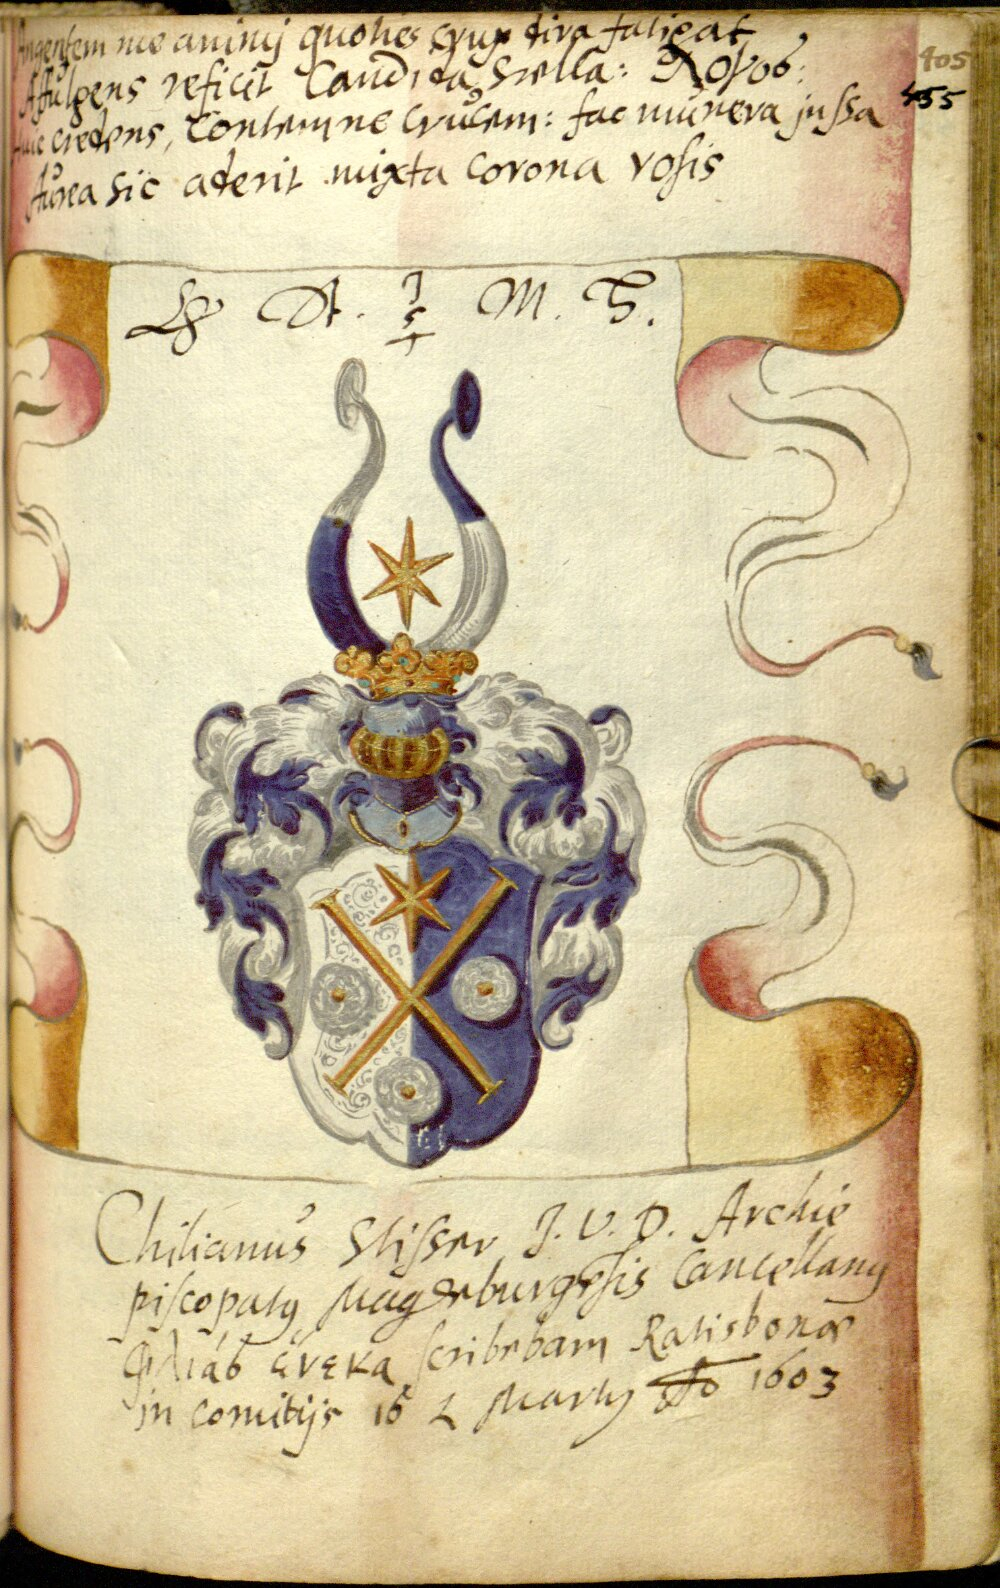 Angentem me animj quoties crux dira fatigat
Affulgens reficit Candida Stella:
405
455
huic credens, Contemne Crucem: fac munera jussa
Aurea sic aderit mixta corona rosis
M.
Chilianus Stisser J. V. D. Archie
piscopatus Magdeburgensis Cancellarius
φιλίας ἕνεκα scribebam Ratisbonae
in comitijs 16 Martij Ao 1603